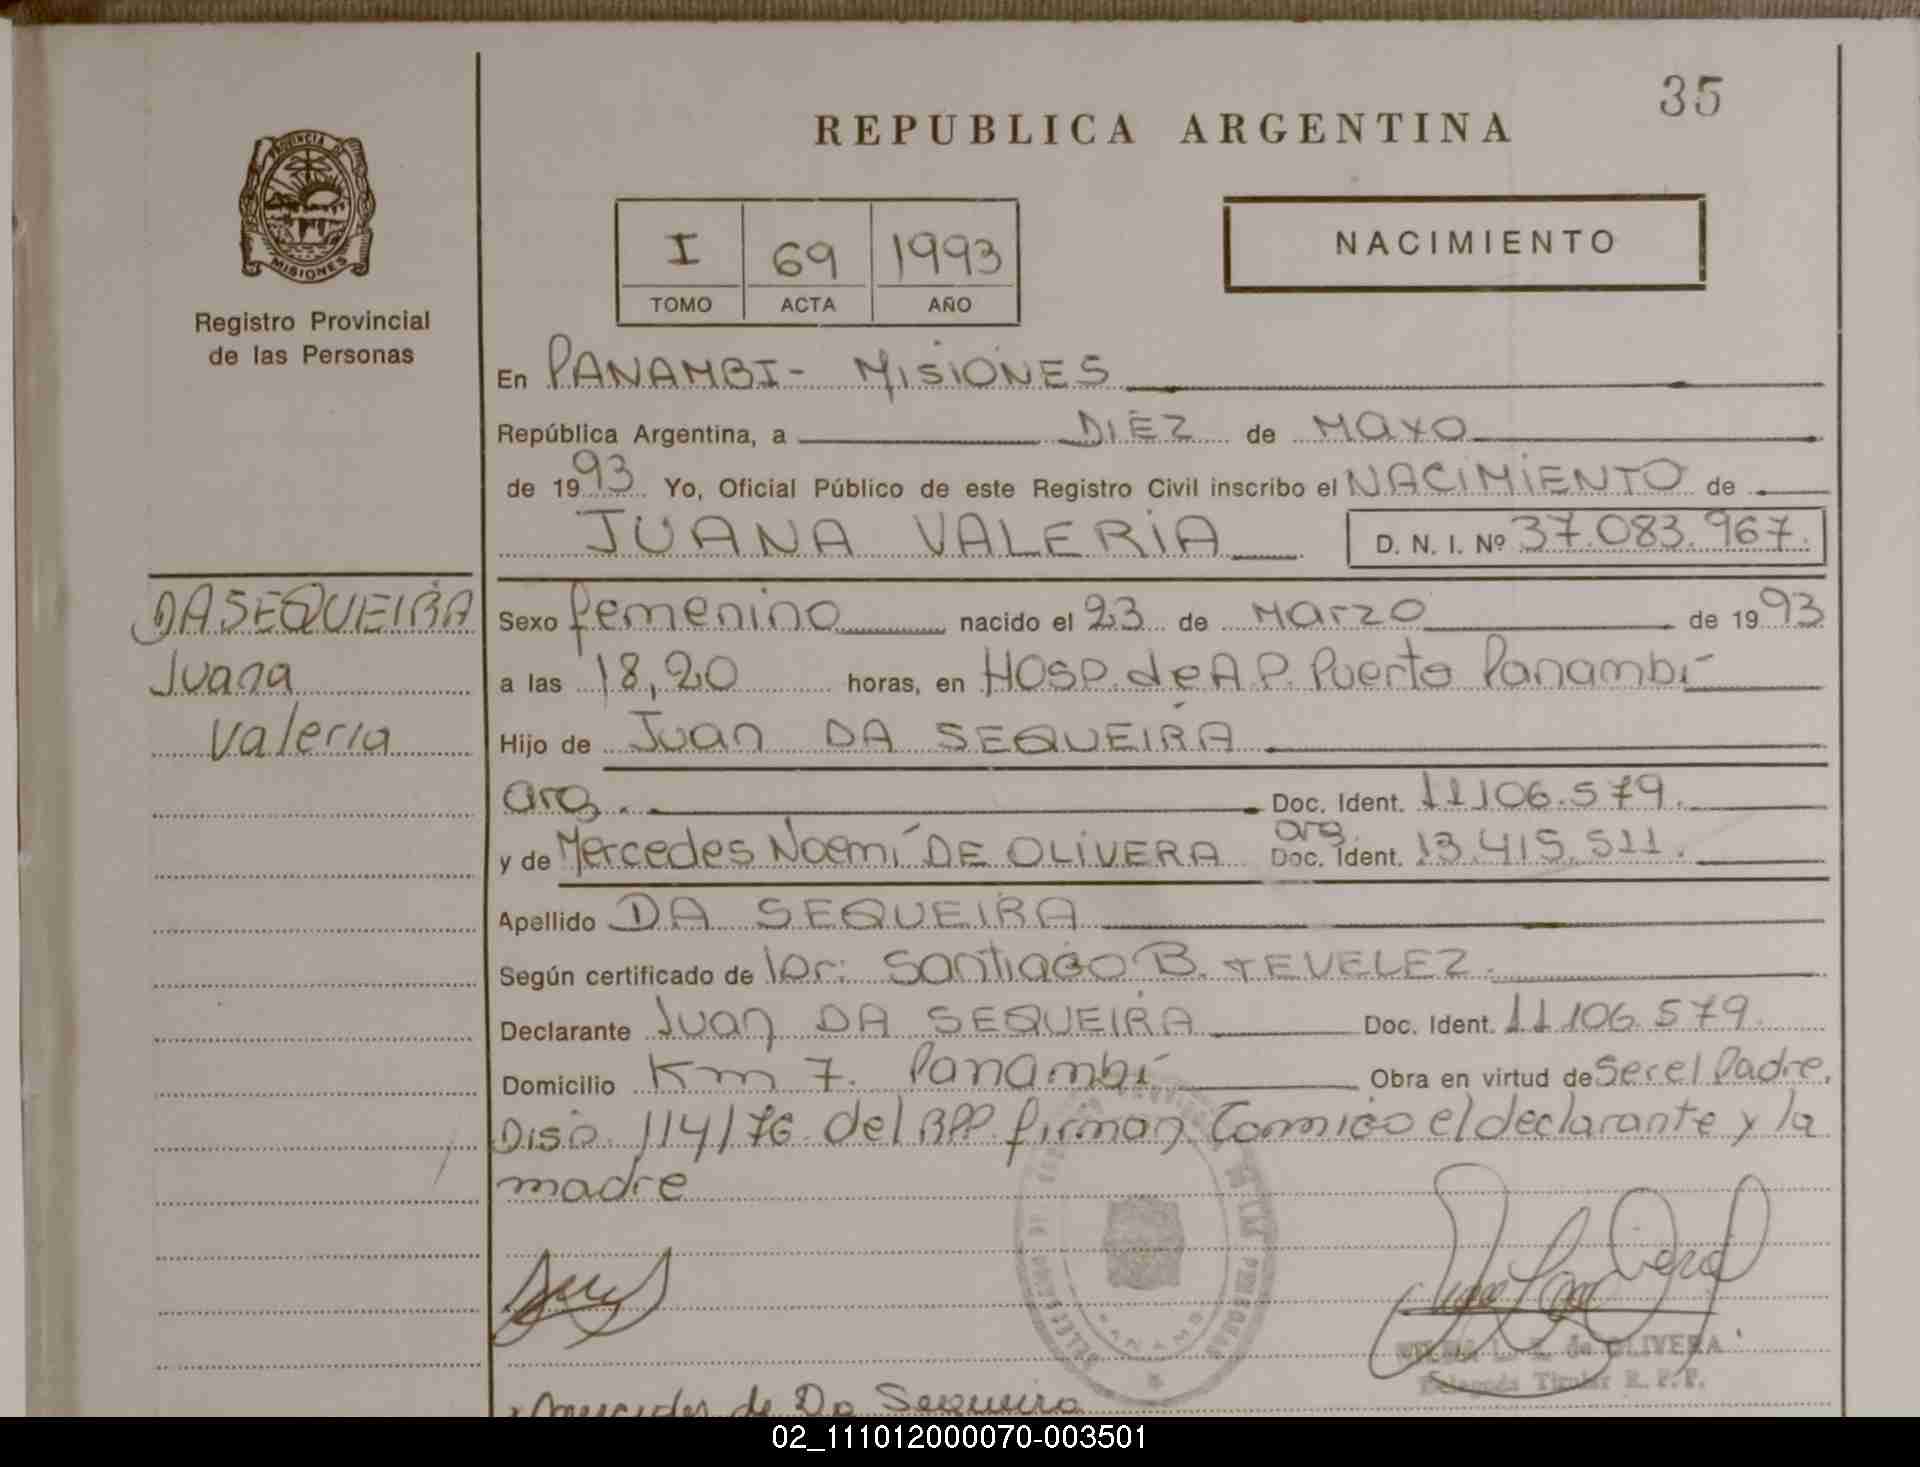 35
REPUBLICA ARGENTINA
PROVINCIA DE
MISIONES
Registro Provincial
de las Personas
I 69 1993
TOMO ACTA AÑO
NACIMIENTO
En PANAMBI - MISIONES
República Argentina, a DIEZ de MAYO
de 1993 Yo, Oficial Público de este Registro Civil inscribo el NACIMIENTO de
JUANA VALERIA D. N. I. Nº 37.083.967.
DA SEQUEIRA
Juana
Valeria
Sexo femenino nacido el 23 de Marzo de 1993
a las 18,20 horas, en Hosp. de A.P. Puerto Panambí
Hijo de Juan DA SEQUEIRA
arg. Doc. Ident. 11106.579.
y de Mercedes Noemí DE OLIVERA arg. Doc. Ident. 13.415.511.
Apellido DA SEQUEIRA
Según certificado de Santiago B. TEVELEZ.
Declarante Juan DA SEQUEIRA Doc. Ident. 11106.579.
Domicilio Km 7. Panambí Obra en virtud de Ser el Padre.
Disp. 114/76 del RPP. firman Conmigo el declarante y la
madre
de OLIVERA
Titular R. P. P.
Mercedes de Da Sequeira
02_111012000070-003501